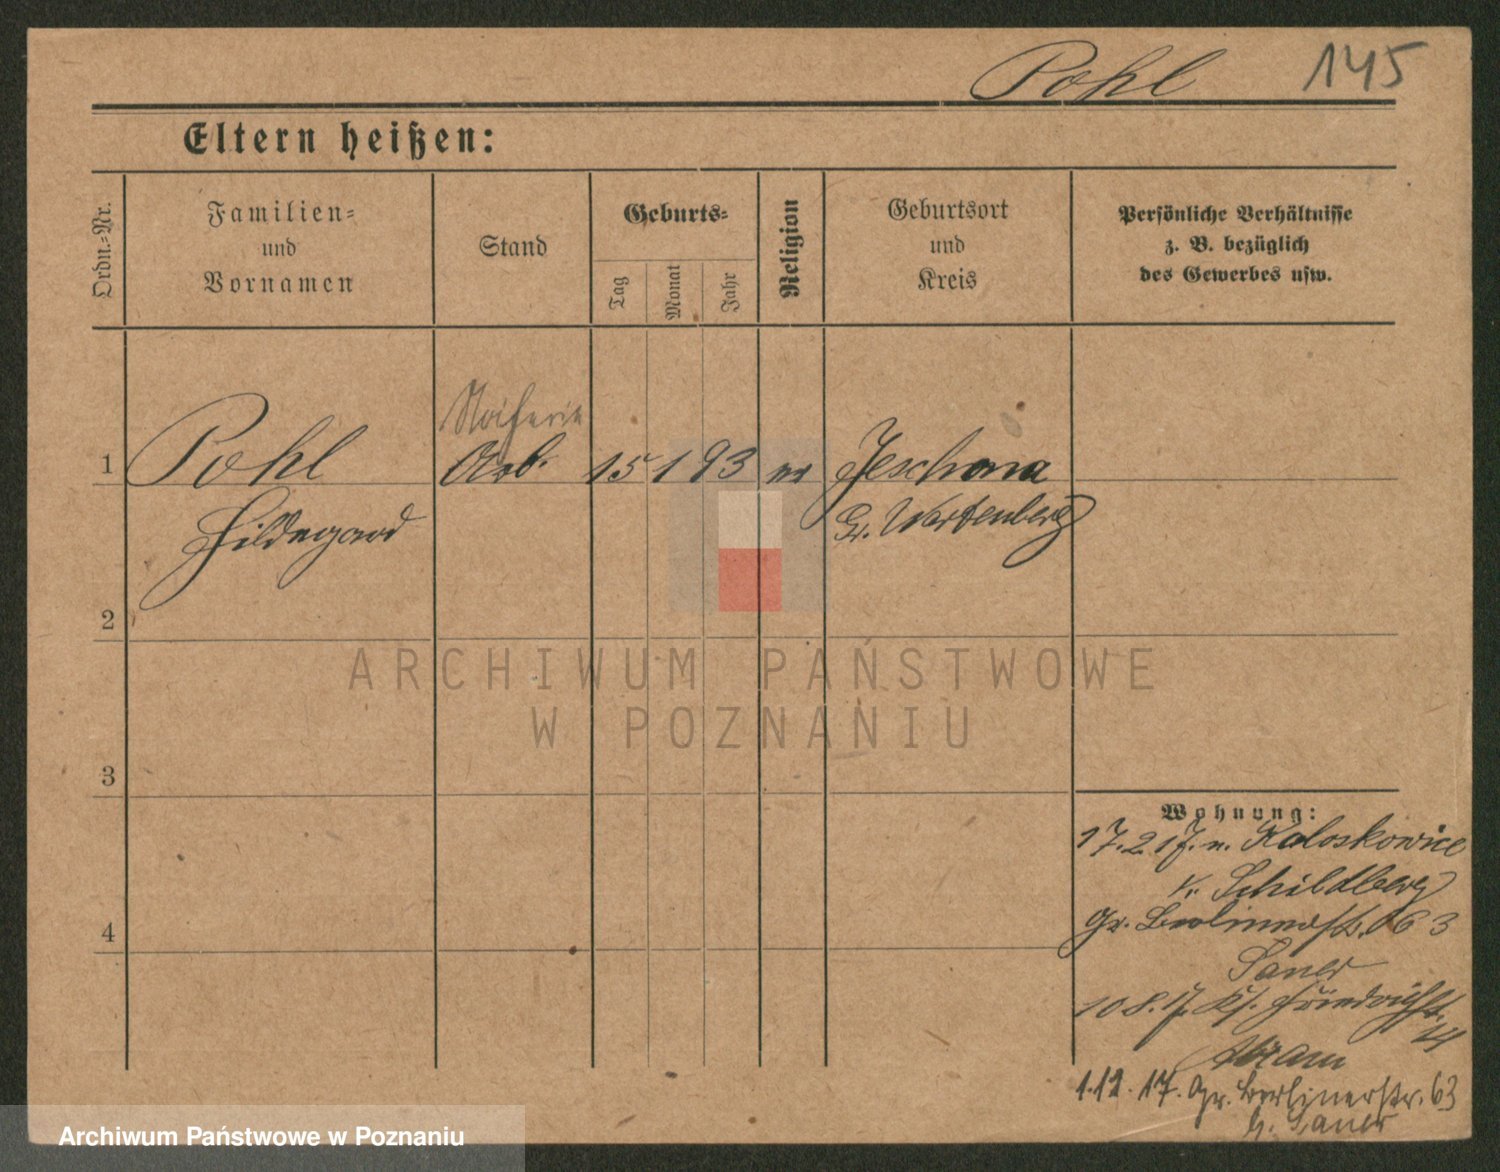 Pohl 145
Eltern heißen:
Ordn.=Nr.
Familien=
und
Vornamen
Stand
Geburts=
Tag
Monat
Jahr
Religion
Geburtsort
und
Kreis
Persönliche Verhältnisse
z. B. bezüglich
des Gewerbes usw.
1 Pohl Arb. 15 1 93 Jeschona
Hildegard Gr. Wartenberg
2
3
4
ARCHIWUM PAŃSTWOWE
W POZNANIU
Wohnung:
17.2.17. v. Kaloskowice
Kr. Schildberg
Gr. Berlinerstr. 63
Sauer
10 8. 17. Friedrichstr.
Abram
1.12.17. Gr. Berlinerstr. 63
b. Sauer
Archiwum Państwowe w Poznaniu